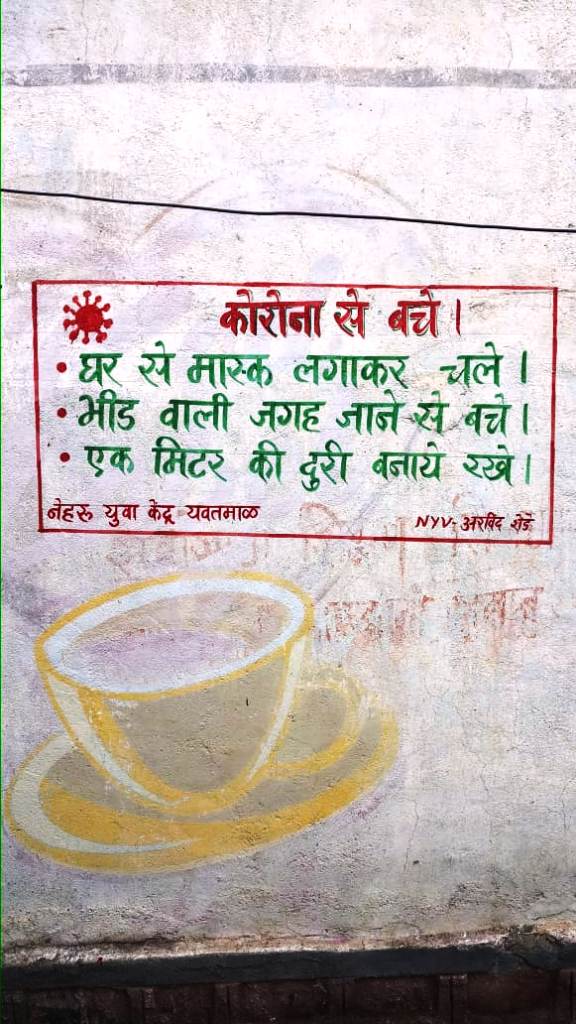 कोरोना से बचे।
• घर से मास्क लगाकर चले।
• भीड वाली जगह जाने से बचे।
• एक मिटर की दुरी बनाये रखे।
नेहरू युवा केंद्र यवतमाळ
NYV- अरविंद शेंडे